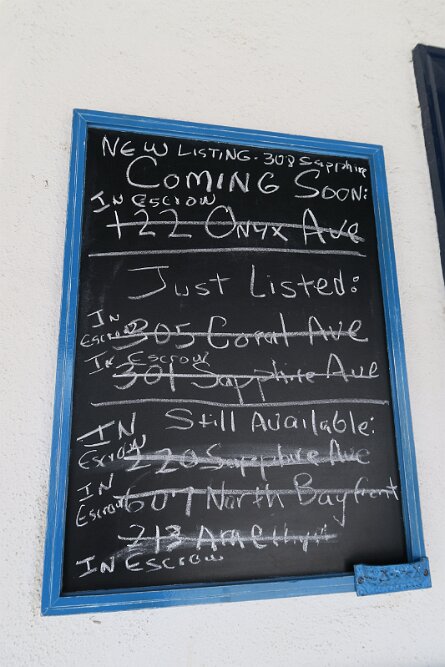 NEW LISTING-308 Sapphire
COMING SOON:
IN ESCROW
122 Onyx Ave
Just Listed:
IN
Escrow 305 Coral Ave
IN Escrow
301 Sapphire Ave
Still Available:
IN
Escrow 220 Sapphire Ave
IN
Escrow 607 North Bayfront
213 Amethyst
IN ESCROW